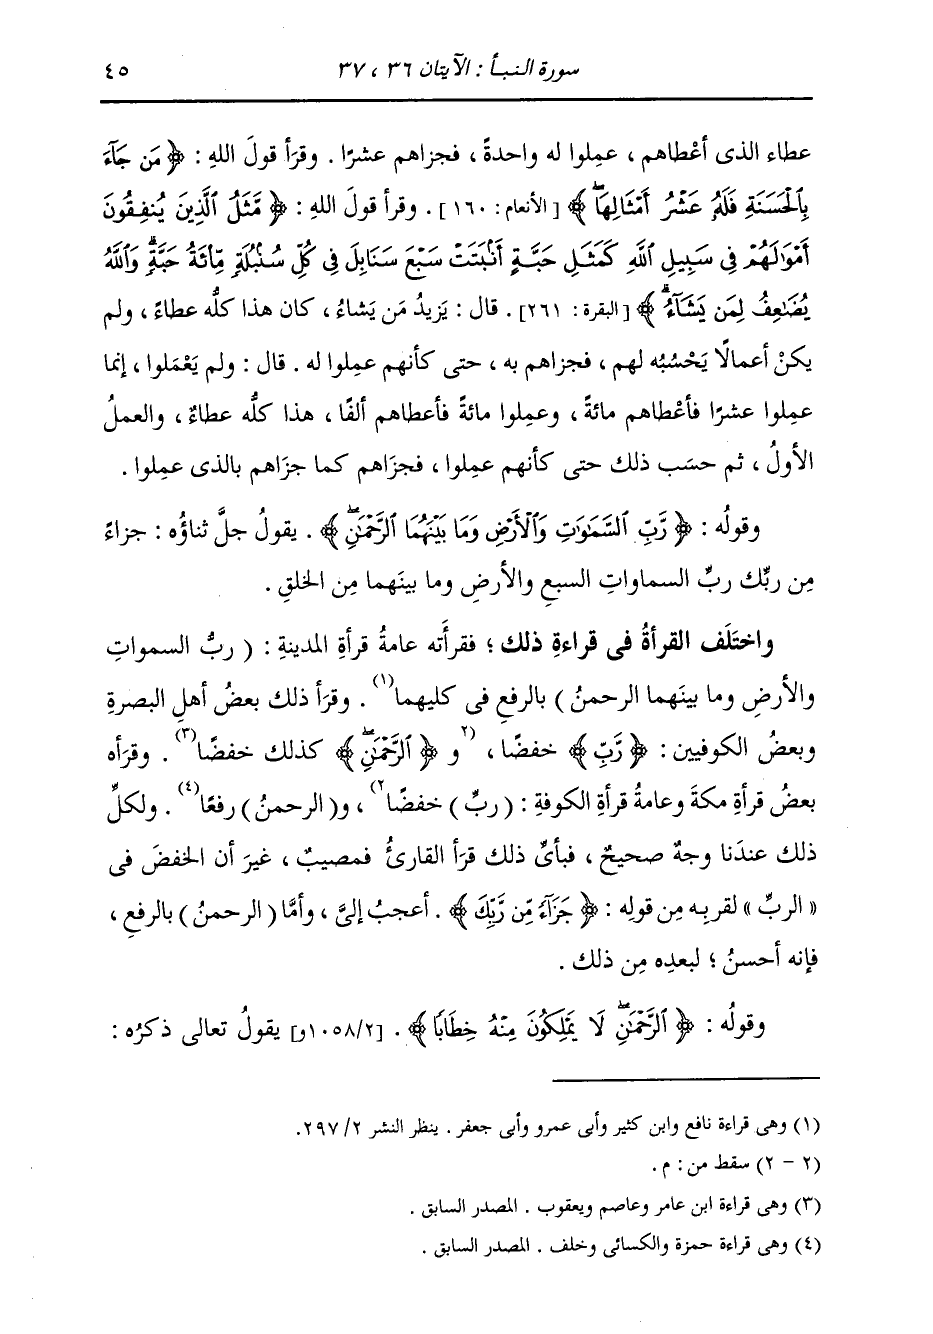 سورة النبأ : الآيتان ٣٦ ، ٣٧ ٤٥
عطاء الذى أعْطاهم ، عمِلوا له واحدةً ، فجزاهم عشرًا . وقرَأ قولَ اللهِ : ﴿ مَن جَآءَ
بِٱلْحَسَنَةِ فَلَهُۥ عَشْرُ أَمْثَالِهَا ۖ ﴾ [ الأنعام : ١٦٠ ] . وقرأ قولَ اللهِ : ﴿ مَّثَلُ ٱلَّذِينَ يُنفِقُونَ
أَمْوَٰلَهُمْ فِى سَبِيلِ ٱللَّهِ كَمَثَلِ حَبَّةٍ أَنۢبَتَتْ سَبْعَ سَنَابِلَ فِى كُلِّ سُنۢبُلَةٍ مِّا۟ئَةُ حَبَّةٍ ۗ وَٱللَّهُ
يُضَٰعِفُ لِمَن يَشَآءُ ۗ ﴾ [ البقرة : ٢٦١ ] . قال : يَزيدُ مَن يَشاءُ ، كان هذا كلُّه عطاءً ، ولم
يكنْ أعمالًا يَحْسُبُه لهم ، فجزاهم به ، حتى كأنهم عمِلوا له . قال : ولم يَعْمَلوا ، إنما
عمِلوا عشرًا فأعْطاهم مائةً ، وعمِلوا مائةً فأعطاهم ألفًا ، هذا كلُّه عطاءٌ ، والعملُ
الأولُ ، ثم حسَب ذلك حتى كأنهم عمِلوا ، فجزَاهم كما جزَاهم بالذى عمِلوا .
وقولُه : ﴿ رَّبِّ ٱلسَّمَٰوَٰتِ وَٱلْأَرْضِ وَمَا بَيْنَهُمَا ٱلرَّحْمَٰنِ ۖ ﴾ . يقولُ جلَّ ثناؤُه : جزاءً
مِن ربِّك ربِّ السماواتِ السبعِ والأرضِ وما بينَهما مِن الخلقِ .
واختَلَف القرأةُ فى قراءةِ ذلك ؛ فقرأَته عامةُ قرأةِ المدينةِ : ( ربُّ السمواتِ
والأرضِ وما بينَهما الرحمنُ ) بالرفعِ فى كليهما(١) . وقرَأ ذلك بعضُ أهلِ البصرةِ
وبعضُ الكوفيين : ﴿ رَّبِّ ﴾ خفضًا ، (٢و ﴿ ٱلرَّحْمَٰنِ ۖ ﴾ كذلك خفضًا(٣) . وقرَأه
بعضُ قرأةِ مكةَ وعامةُ قرأةِ الكوفةِ : ( ربِّ ) خفضًا٢) ، و( الرحمنُ ) رفعًا(٤) . ولكلِّ
ذلك عندَنا وجهٌ صحيحٌ ، فبأىِّ ذلك قرَأ القارئُ فمصيبٌ ، غيرَ أن الخفضَ فى
« الربِّ » لقربِه مِن قولِه : ﴿ جَزَآءً مِّن رَّبِّكَ ﴾ . أعجبُ إلىَّ ، وأمَّا ( الرحمنُ ) بالرفعِ ،
فإنه أحسنُ ؛ لبعدِه مِن ذلك .
وقولُه : ﴿ ٱلرَّحْمَٰنِ ۖ لَا يَمْلِكُونَ مِنْهُ خِطَابًا ﴾ . [١٠٥٨/٢و] يقولُ تعالى ذكرُه :
(١) وهى قراءة نافع وابن كثير وأبى عمرو وأبى جعفر . ينظر النشر ٢/ ٢٩٧.
(٢ - ٢) سقط من : م .
(٣) وهى قراءة ابن عامر وعاصم ويعقوب . المصدر السابق .
(٤) وهى قراءة حمزة والكسائى وخلف . المصدر السابق .